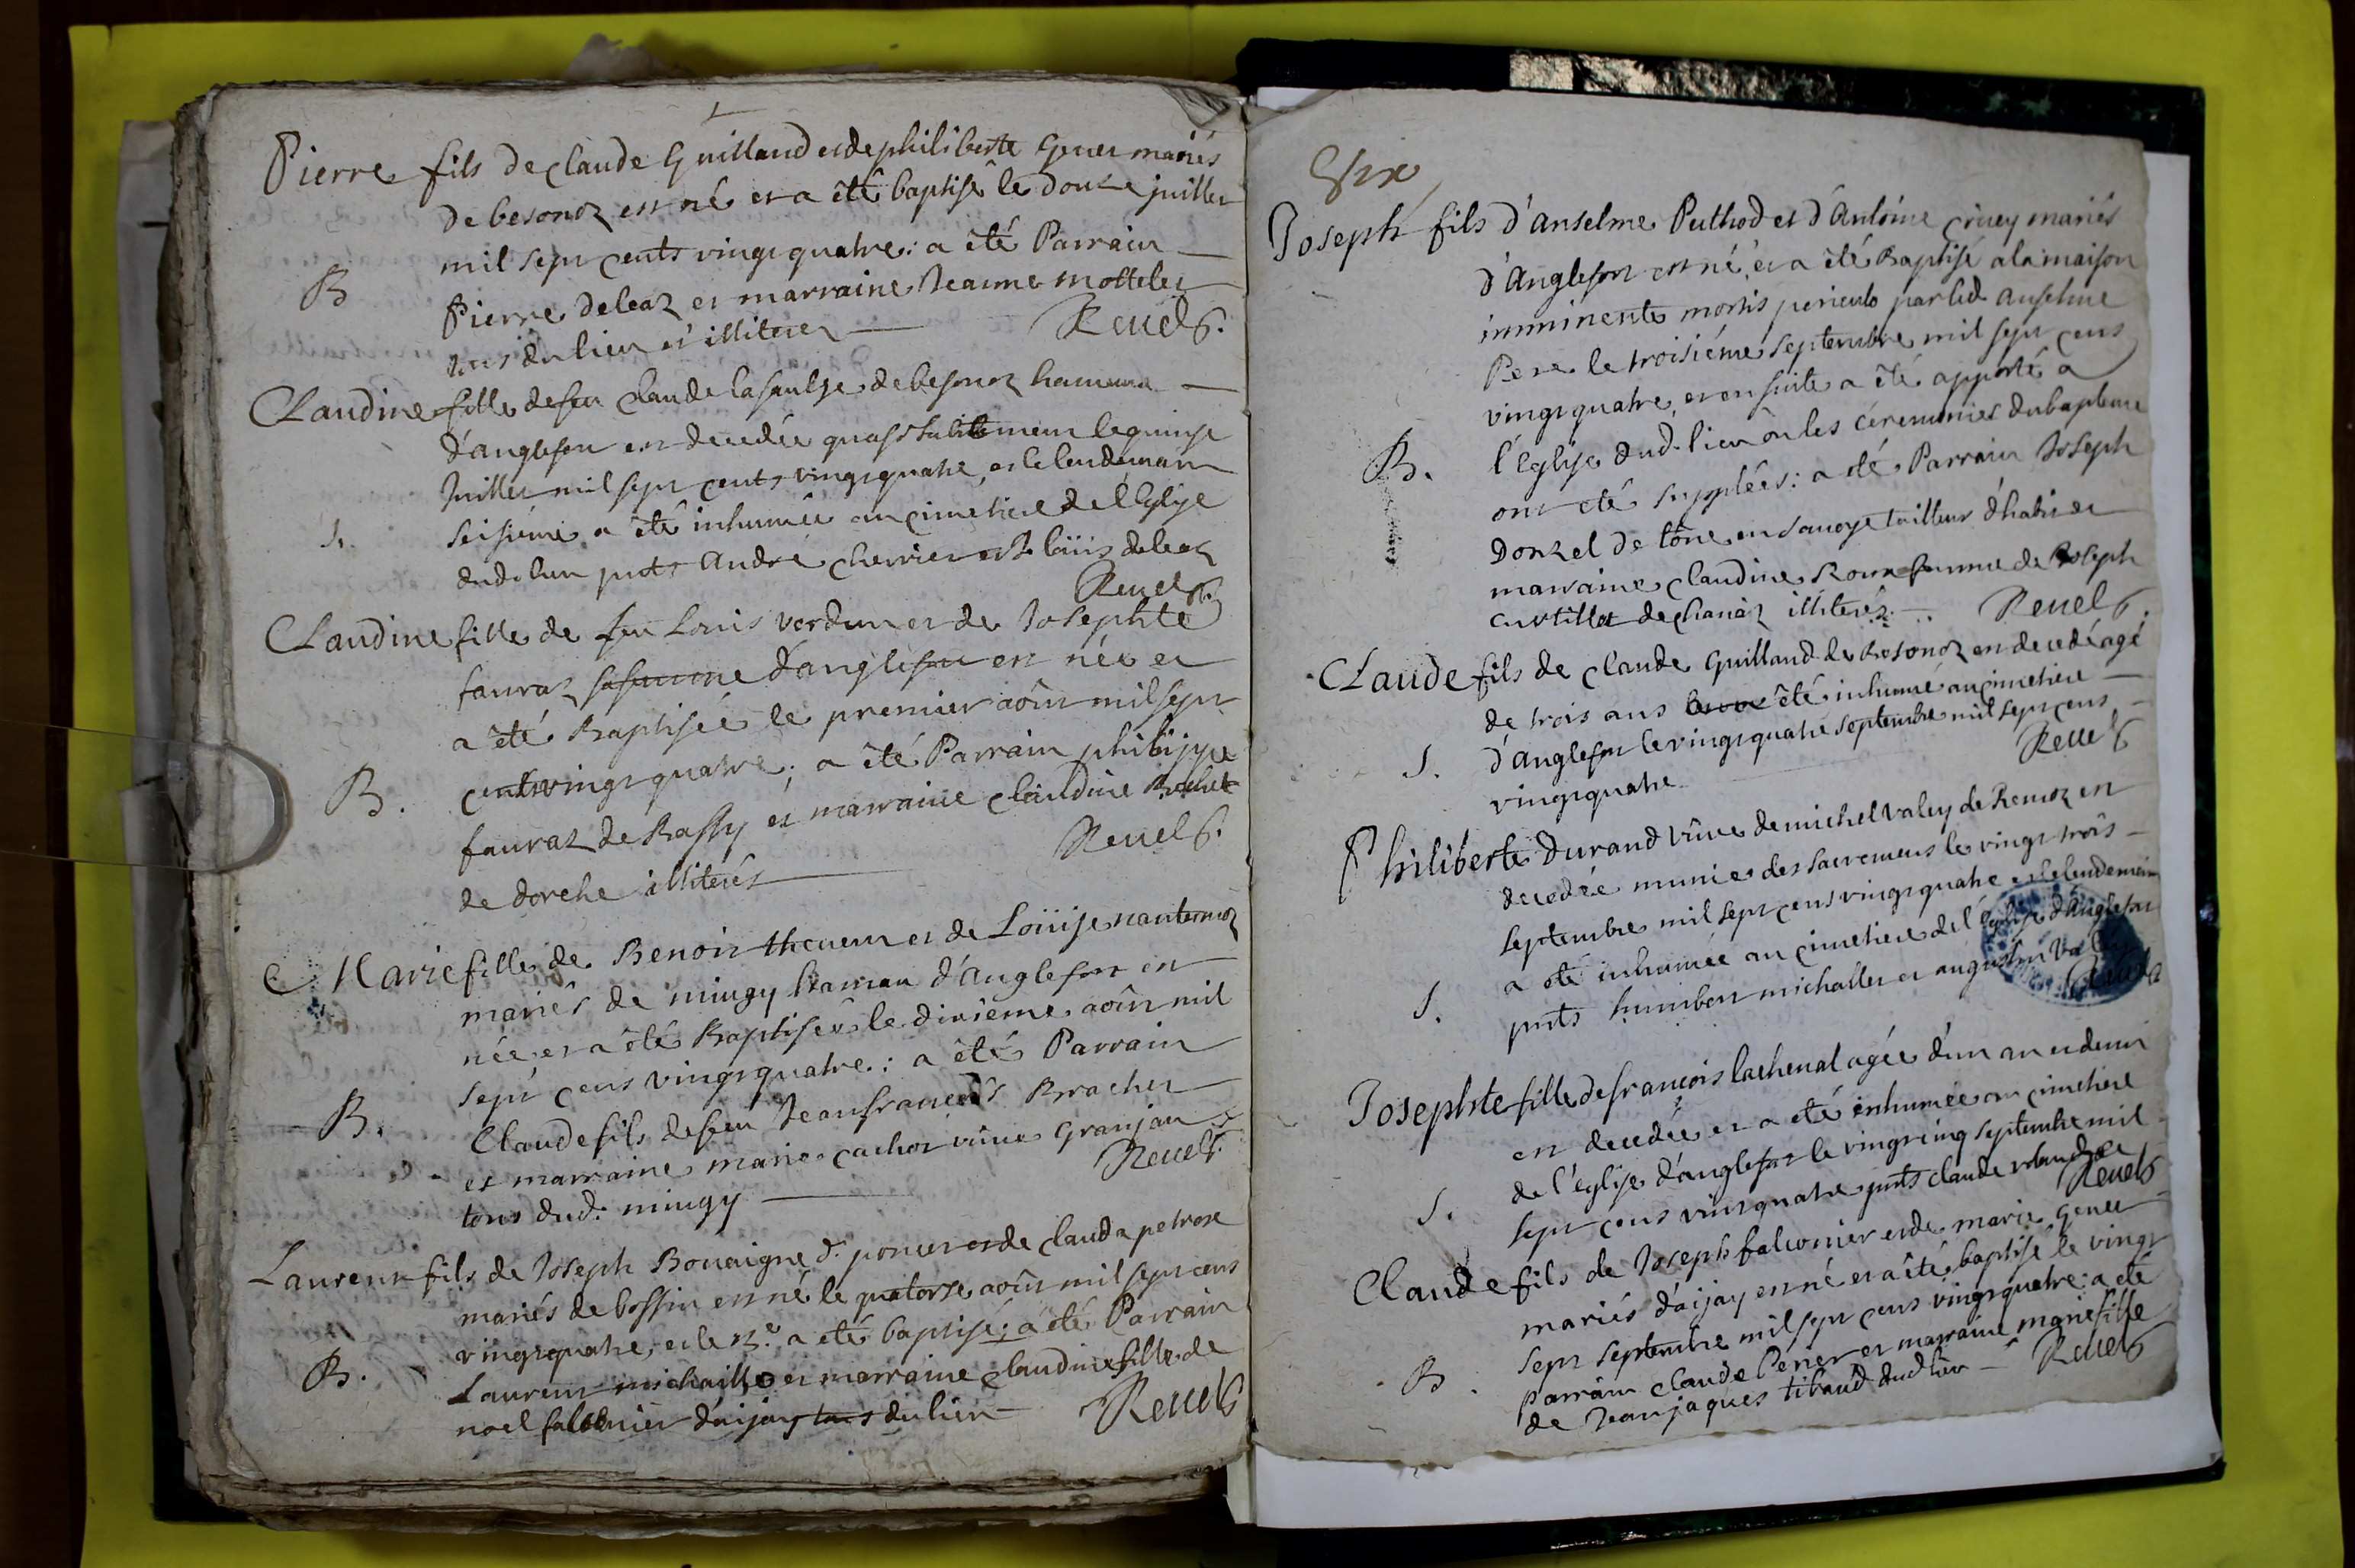 Pierre fils de Claude Guilland et de philiberte Gener mariés
de besonoz est né et a été baptisé le douze juillet
mil sept cents vingt quatre : a été Parrain
B
Pierre deleaz et marraine Jeanne mottelet
tous du lieu et illiterez Reuel C.
Claudine fille de feu Claude la saulge de besonoz hameau
d'anglefort est decedée quasi subitement le quinze
Juillet mil sept cents vingt quatre, et le lendemain
seisieme a été inhumée au cimetiere de l'Eglise
S.
dud. lieu pnts André Cherrier et Loüis deleaz
Reuel C.
Claudine fille de feu Louis verdun et de Josephte
fauraz sa femme d'anglefort est née et
a été Baptisée le premier août mil sept
B.
cents vingt quatre ; a été Parrain philippe
fauraz de Bassy et marraine Claudine Rochet
de dorche illiterés Reuel C.
Marie fille de Benoit thevenin et de Loüise nantermoz
mariés de mingy hameau d'Anglefort est
née et a été Baptisée le dixième août mil
sept cens vingt quatre : a été Parrain
B.
Claude fils de feu Jean francois Brachet
et marraine marie cachot vûue Granjan
tous dud. mingy Reuel C.
Laurent fils de Joseph Bouaigne d. poncet et de clauda petrose
mariés de bossin est né le quatorze août mil sept cens
vingt quatre, et le 15e a été baptisé ; a été Parrain
B.
Laurent michaille et marraine Claudine fille de
noel falconier d'aijay tous du lieu Reuel C
Six
Joseph fils d'anselme Puthod et d'Antoine Criuey mariés
d'Anglefort est né, et a été Baptisé a la maison
imminente mortis periculo par led. anselme
Pere le troisiéme septembre mil sept cens
vingt quatre, et en suite a été apporté a
B.
l'Eglise dud. lieu où les céremonies du bapteme
ont été supplées : a été Parrain Joseph
Donzel de lône en savoye tailleur d'habis et
marraine Claudine Roux femme de Joseph
curtillet de chanaz illiterés. Reuel C.
Claude fils de Claude Guilland de Besonoz est decedé agé
de trois ans et a été inhumé au cimetiere
S.
d'Anglefort le vingt quatre septembre mil sept cens
vingt quatre Reuel C
Philiberte Durand vûue de michel valey de Remoz est
decedée munie des sacremens le vingt trois
septembre mil sept cens vingt quatre et le lendemain
a été inhumée au cimetiere de l'Eglise d'Anglefort
S.
pnts humbert michallet et augustin Valey
Reuel C
Josephte fille de françois lachenal agée d'un an et demi
est decedée et a été inhumée au cimetiere
de l'église d'anglefort le vingt cinq septembre mil
S.
sept cens vint quatre pnts claude
Reuel C
Claude fils de Joseph falconier et de marie Gener
mariés d'aijay est né et a été baptisé le vingt
sept septembre mil sept cens vingt quatre : a été
B.
Parrain Claude Pener et marraine marie fille
de Jean jaques tibaud dud lieu Reuel C